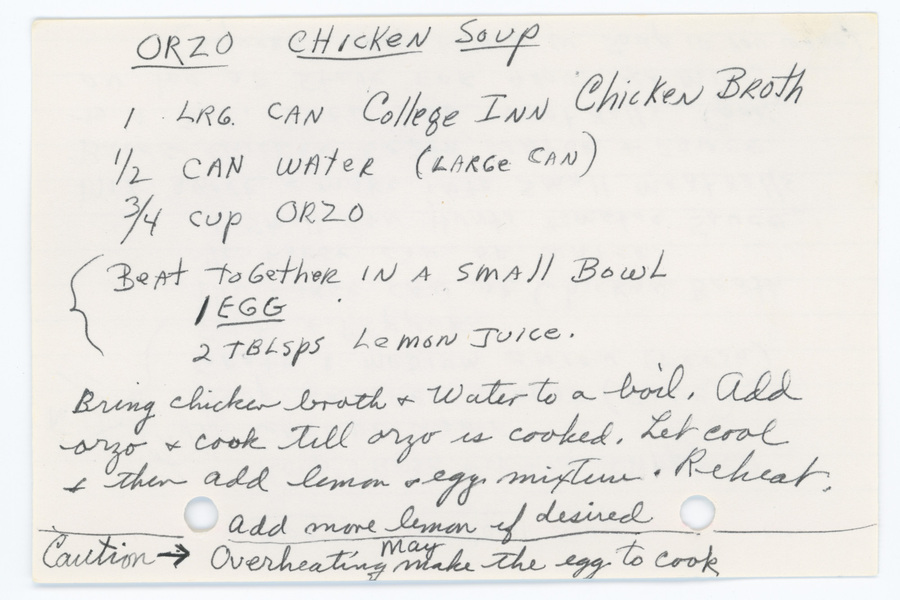 ORZO CHICKEN SOUP
1 LRG. CAN College INN Chicken Broth
1/2 CAN WATER (LARGE CAN)
3/4 cup ORZO
BEAT TOGETHER IN A SMALL BOWL
1 EGG
2 TBLSPS Lemon Juice.
Bring chicken broth & Water to a boil. Add
orzo & cook till orzo is cooked. Let cool
& then add lemon & egg mixture. Reheat.
add more lemon if desired
Caution → Overheating may make the egg to cook